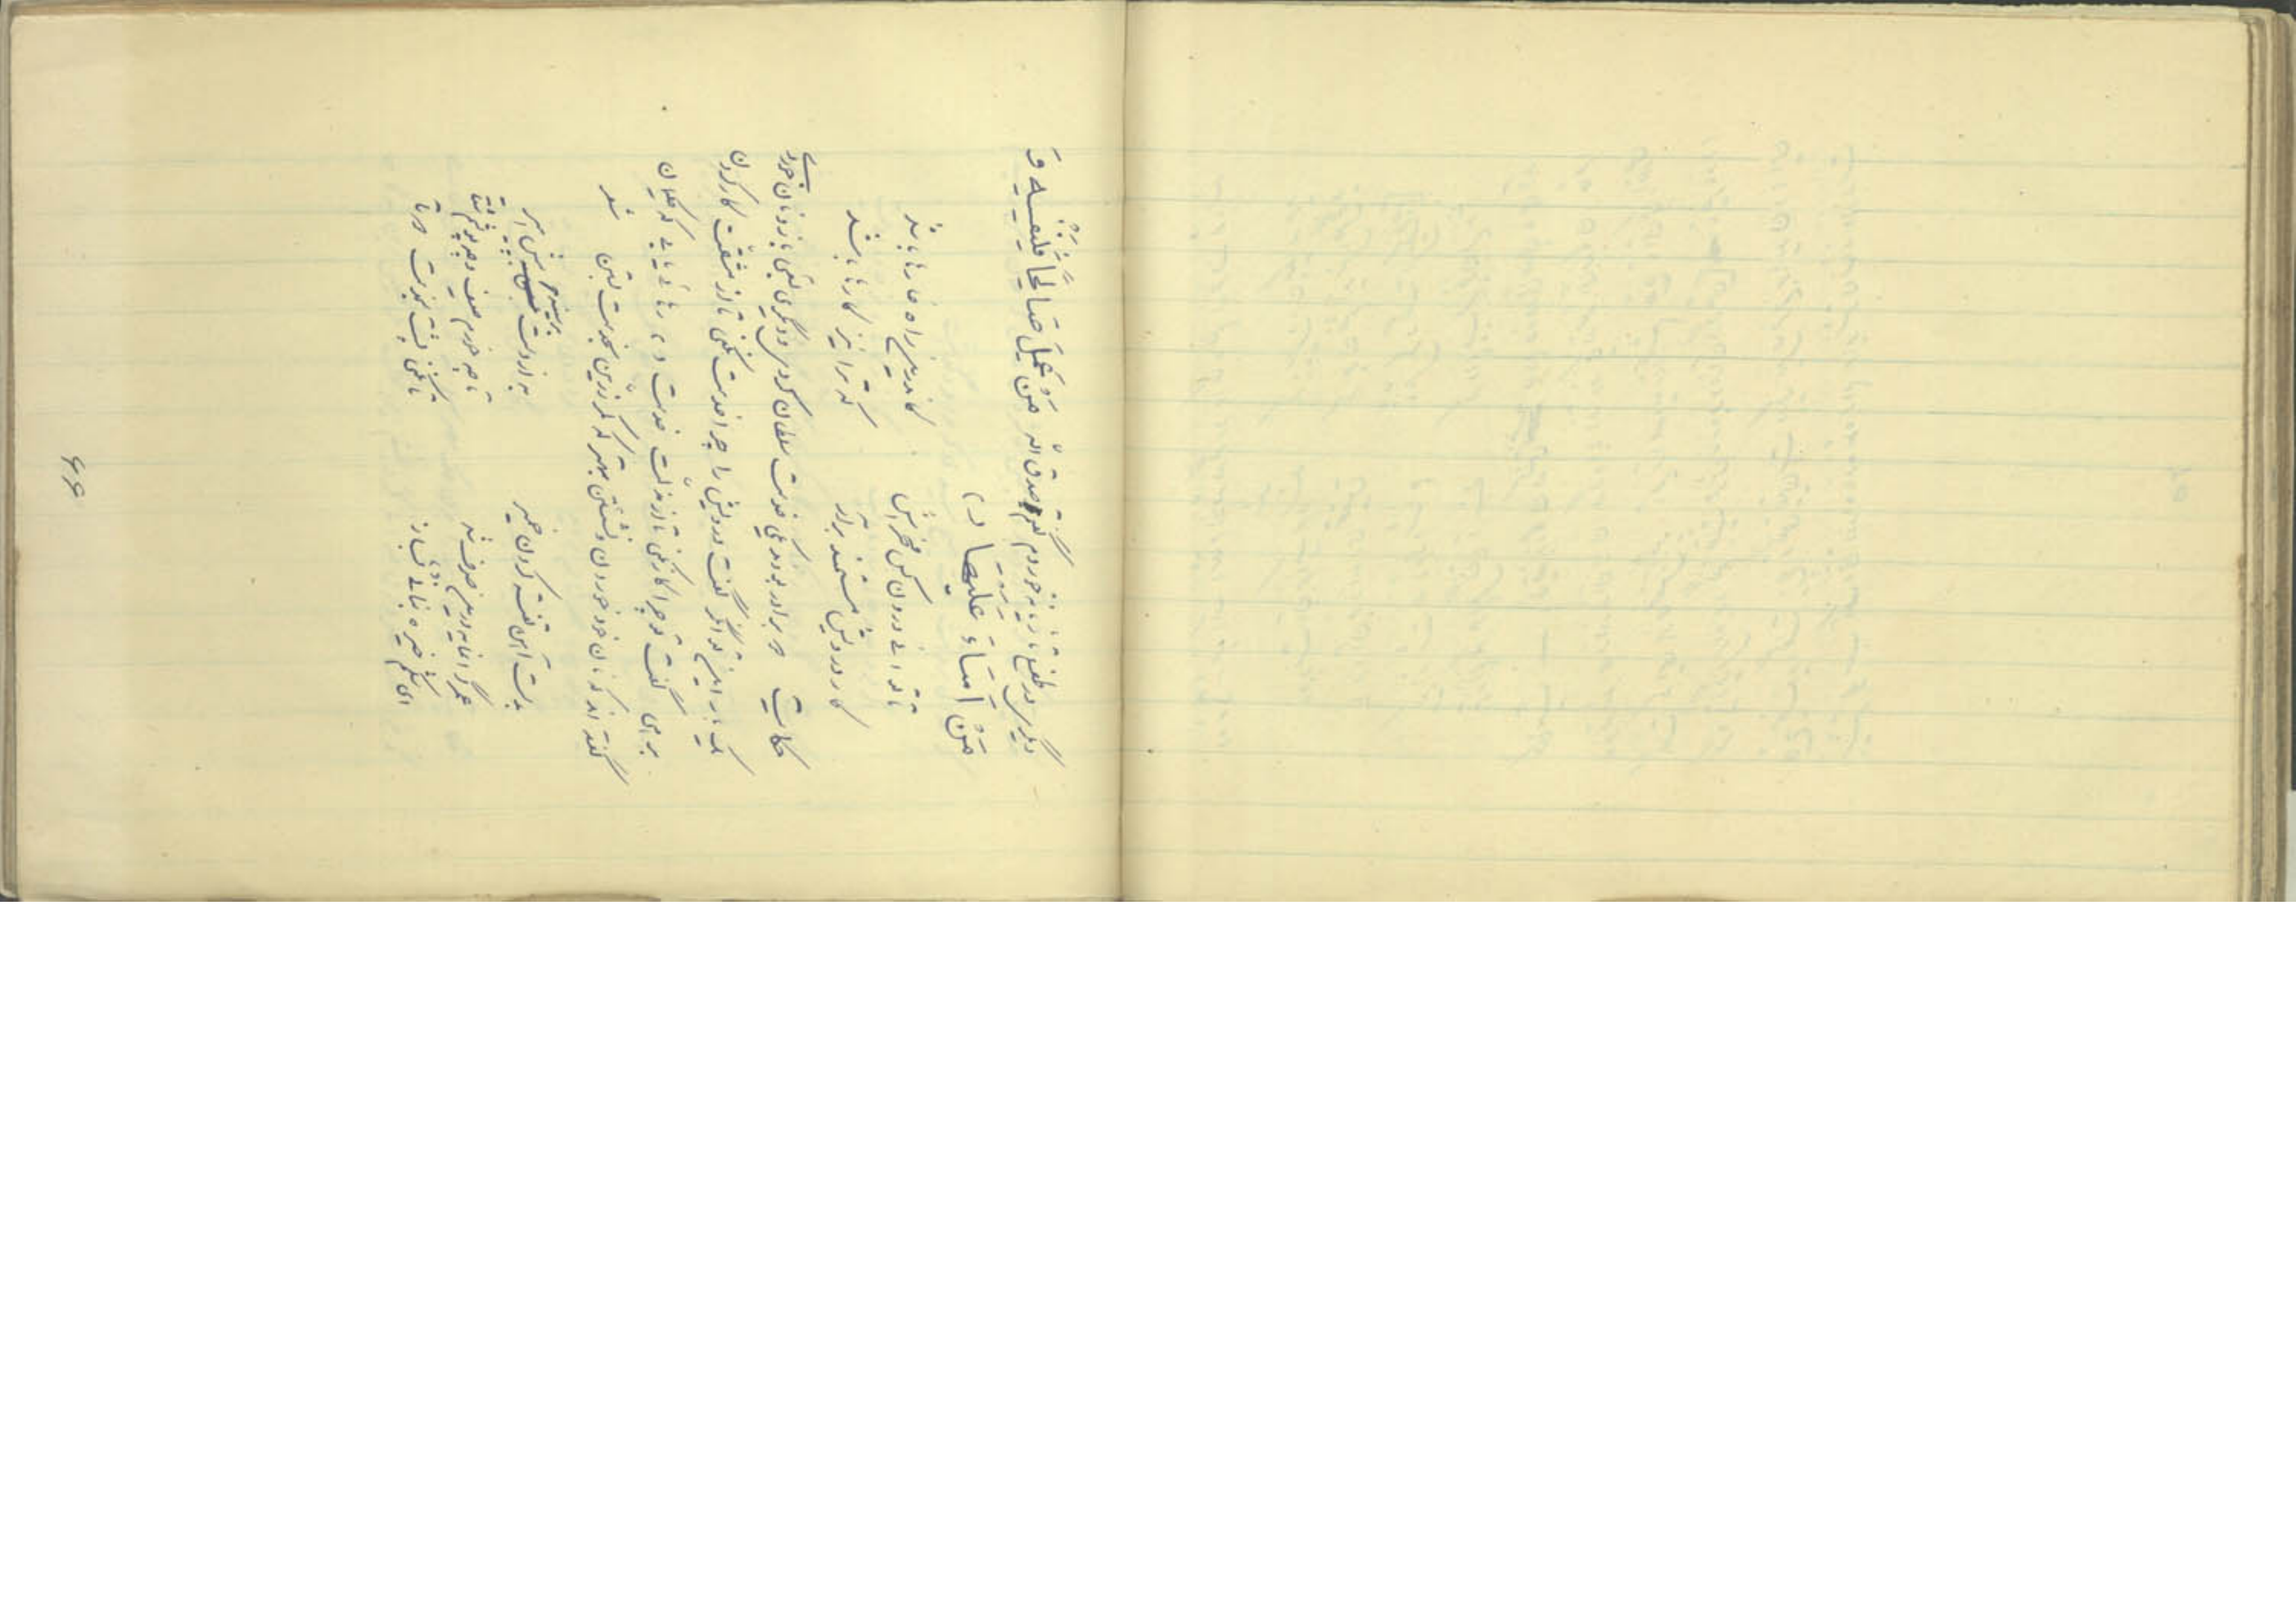 دیگری در طفلی تازیانه خوردم گفتم صدق الله مَن عَمِلَ صالحاً فَلِنَفسِهِ وَ
مَن اَساءَ فَعَلَیها
تا توانی درون کس مخراش کاندرین راه خارها باشد
کار درویش مستمند برآر که ترا نیز کارها باشد
حکایت دو برادر بودند یکی خدمت سلطان کردی و دیگری بسعی بازو نان خوردی
یک بار این توانگر گفت درویش را چرا خدمت نکنی تا از مشقت کار کردن
برهی گفت تو چرا کار نکنی تا از مذلت خدمت رهائی یابی که حکیمان
گفته اند که نان خود خوردن و نشستن بهتر که کمر زرین بخدمت بستن
بدست آهن تفته کردن خمیر به از دست بر سینه پیش امیر
عمر گرانمایه درین صرف شد تا چه خورم صیف و چه پوشم شتا
ای شکم خیره بنانی بساز تا نکنی پشت بخدمت دوتا
۶۶